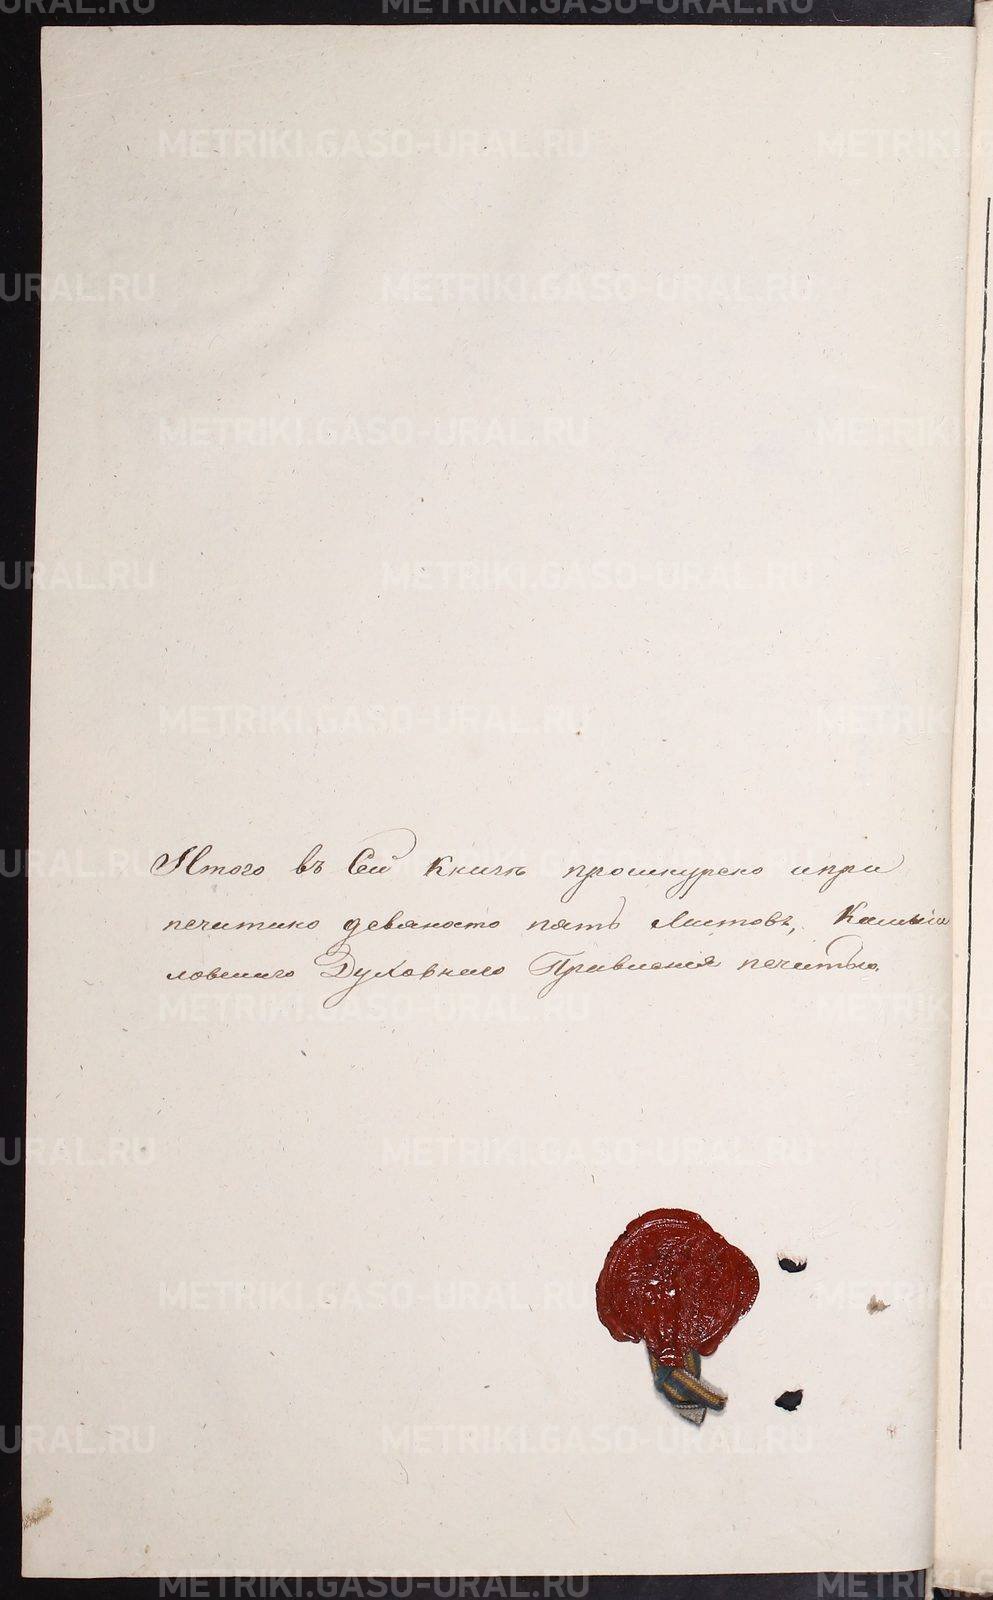 Итого въ Сей Книгѣ прошнурено и при
печатано девяносто пять Листовъ, Камыш
ловскаго Духовнаго Правленія печатью.